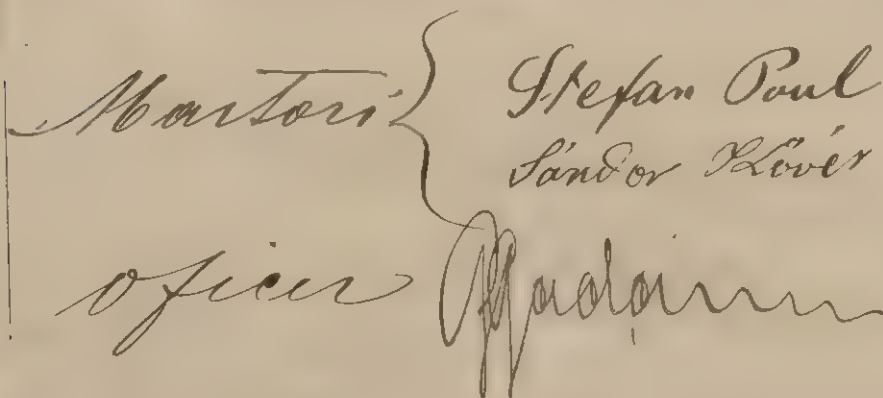 Martori Stefan Poul
Sándor Kövér
oficer